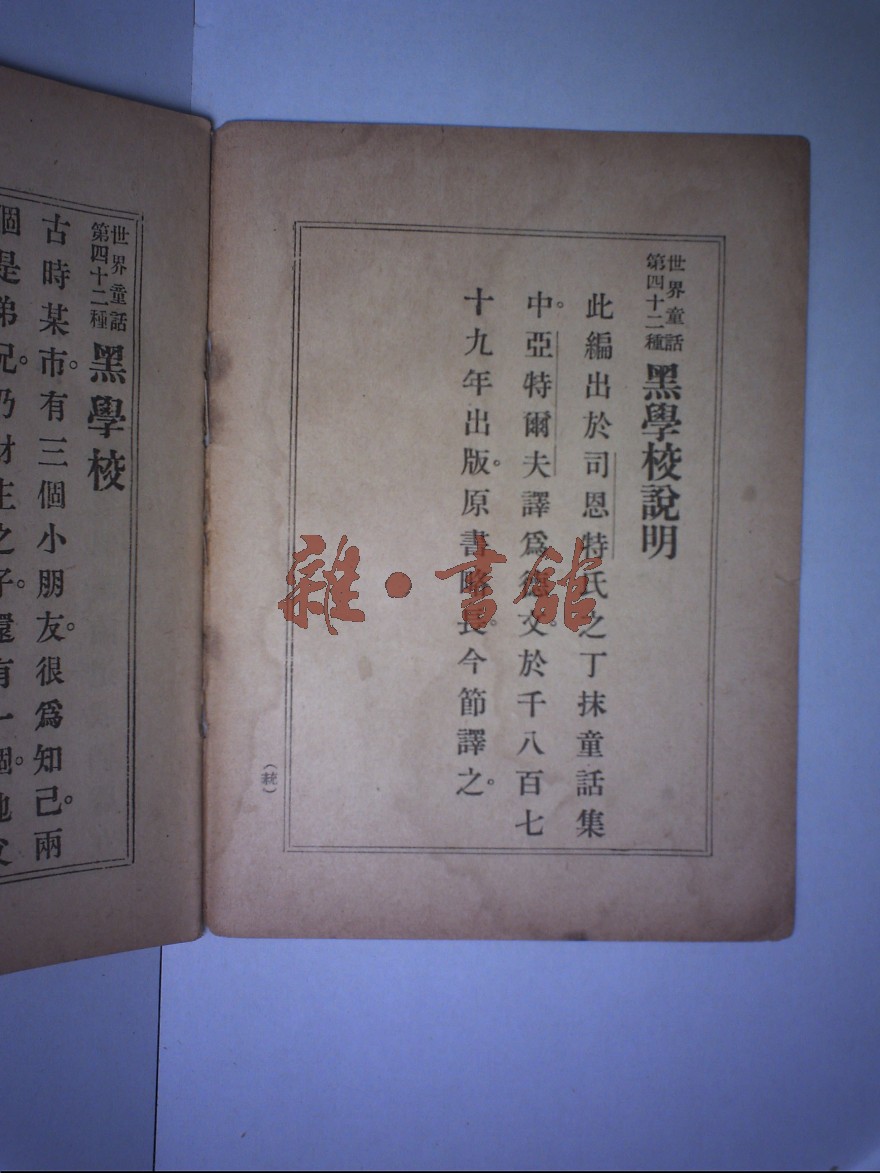 世界童話
第四十二種
黑學校說明
此編出於司恩特氏之丁抹童話集
中。亞特爾夫譯爲德文。於千八百七
十九年出版。原書略長。今節譯之。
世界童話
第四十二種
黑學校
古時某市。有三個小朋友。很爲知己。兩
個是弟兄。乃財主之子。還有一個。他父
雜·書館